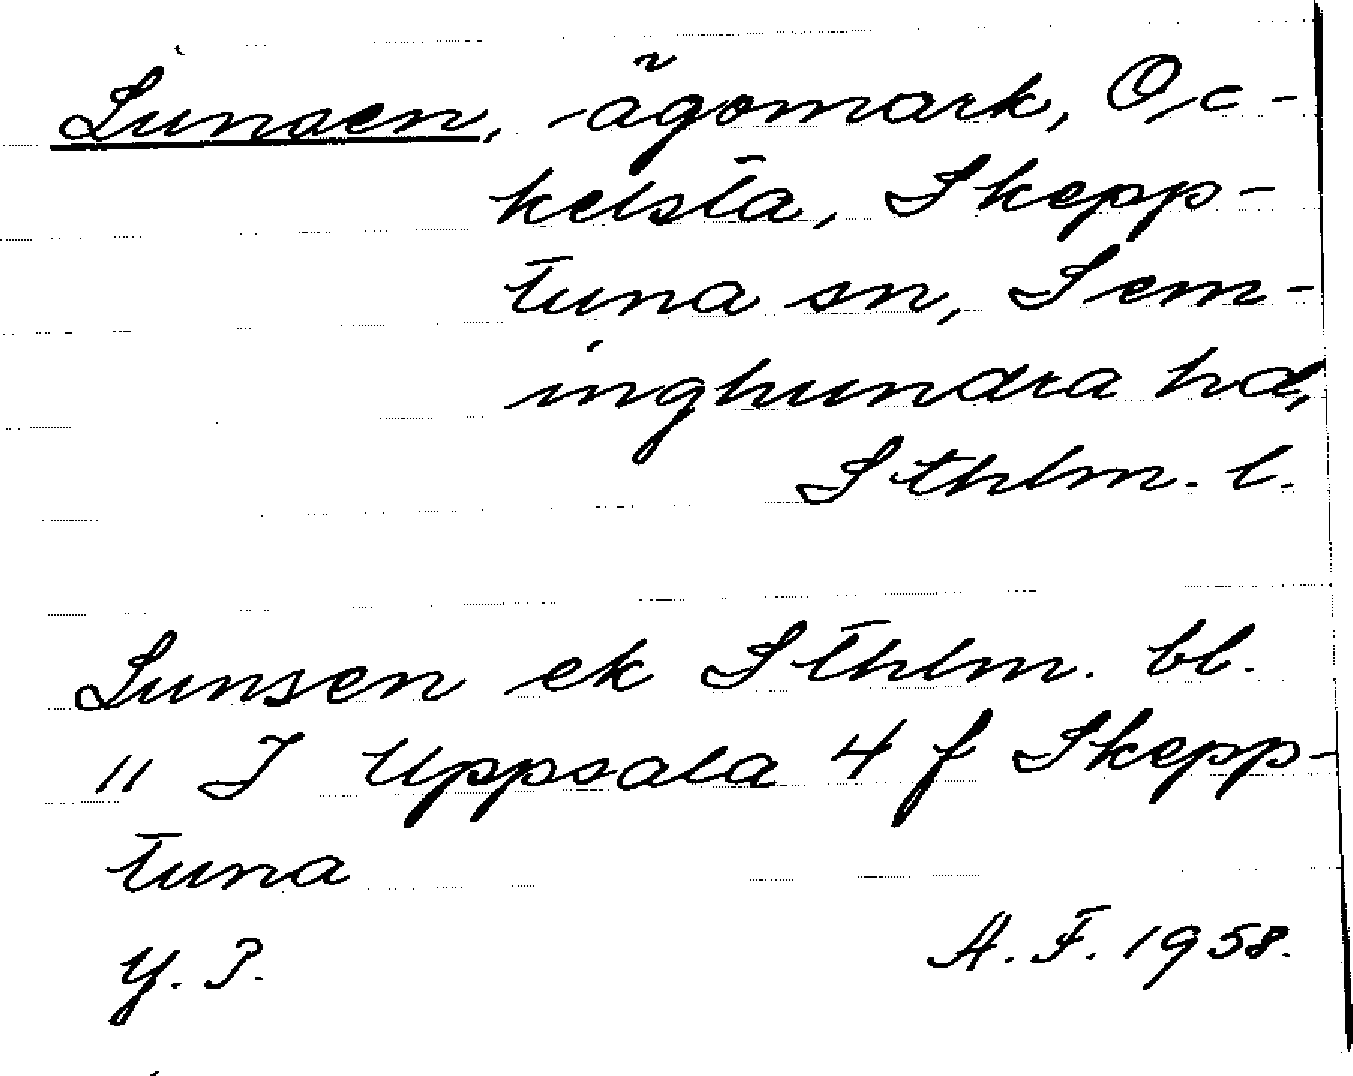 Lunsen, ägomark, Oc-
kelsta, Skepp-
tuna sn, Sem-
inghundra hd,
Sthlm. l.
Lunsen ek Sthlm. bl.
11 I Uppsala 4 f Skepp-
tuna
Y. P.
A. F. 1958.